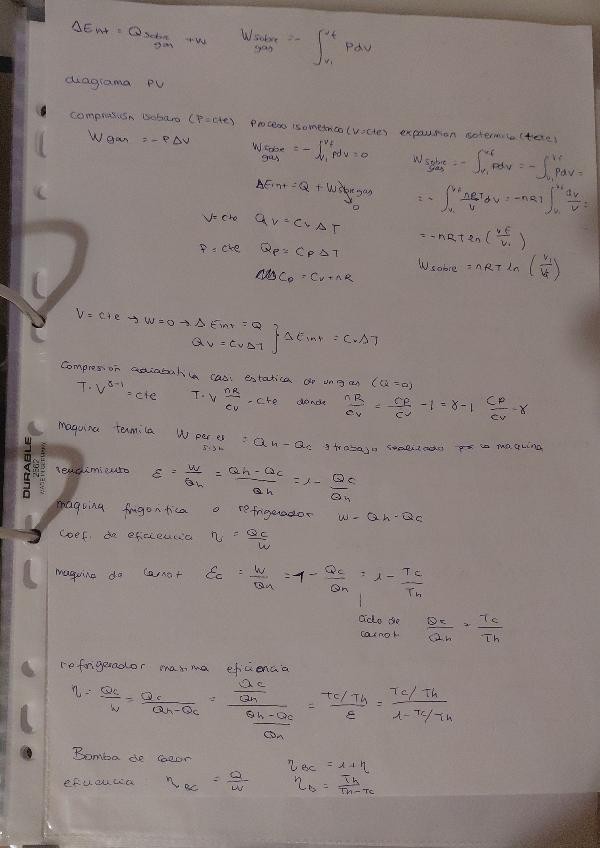 ΔEint = Q sobre gas + W    W sobre gas = - ∫_{Vi}^{Vf} PdV
diagrama PV
compresión isobara (P=cte)    Proceso isometrico (V=cte)    expansion isotermica (T=cte)
W gas = -PΔV    W sobre gas = - ∫_{Vi}^{Vf} PdV = 0    W sobre gas = - ∫_{Vi}^{Vf} PdV = - ∫_{Vi}^{Vf} PdV =
ΔEint = Q + W sobre gas → 0    = - ∫_{Vi}^{Vf} nRT/V dV = -nRT ∫_{Vi}^{Vf} dV/V =
V=cte    Qv = Cv ΔT    = -nRT ln (Vf/Vi)
P=cte    Qp = Cp ΔT    W sobre = nRT ln (Vi/Vf)
Cp = Cv + nR
V=cte → W=0 → ΔEint = Q
Qv = CvΔT } ΔEint = CvΔT
Compresion adiabatica casi estatica de un gas (Q=0)
T·V^{γ-1} = cte    T·V^{nR/Cv} = cte    donde nR/Cv = Cp/Cv - 1 = γ - 1    Cp/Cv = γ
maquina termica    W = Qh - Qc    trabajo realizado por la maquina
rendimiento    ε = W/Qh = (Qh - Qc)/Qh = 1 - Qc/Qh
maquina frigorifica o refrigerador    W = Qh - Qc
coef. de eficiencia    η = Qc/W
DURABLE
2662
maquina de carnot    εc = W/Qh = 1 - Qc/Qh = 1 - Tc/Th
ciclo de carnot    Qc/Qh = Tc/Th
refrigerador maxima eficiencia
η = Qc/W = Qc/(Qh - Qc) = (Qc/Qh)/((Qh - Qc)/Qh) = (Tc/Th)/ε = (Tc/Th)/(1 - Tc/Th)
Bomba de calor    ηBC = 1 + η
eficiencia:    ηBC = Q/W    ηB = Th/(Th - Tc)